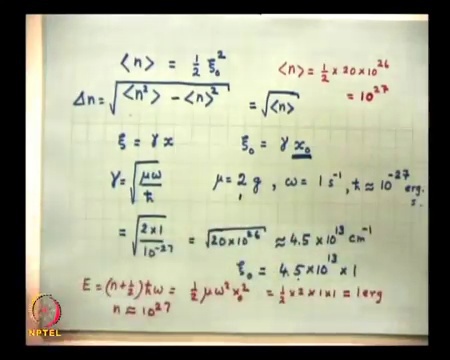 ⟨n⟩ = ½ ξ₀²
⟨n⟩ = ½ × 20 × 10²⁶
= 10²⁷
Δn = √(⟨n²⟩ - ⟨n⟩²) = √⟨n⟩
ξ = γx ξ₀ = γ x₀
γ = √(μω/ħ) μ = 2 g, ω = 1 s⁻¹, ħ ≈ 10⁻²⁷ erg. s.
= √(2×1/10⁻²⁷) = √(20×10²⁶) ≈ 4.5 × 10¹³ cm⁻¹
ξ₀ = 4.5 × 10¹³ × 1
E = (n+½)ħω = ½ μω²x₀² = ½ × 2 × 1 × 1 = 1 erg
n ≈ 10²⁷
NPTEL